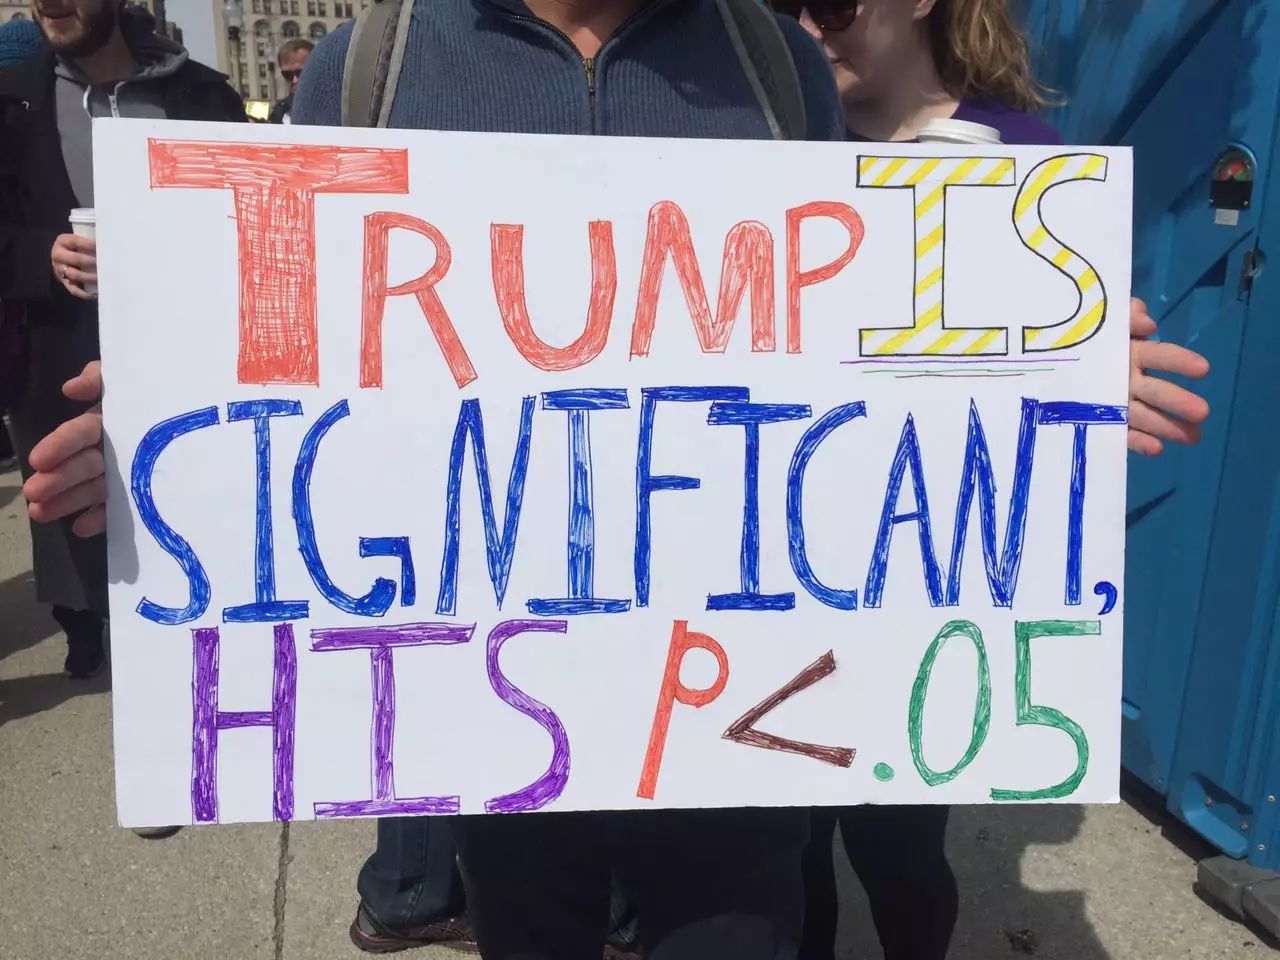 TRUMP IS
SIGNIFICANT,
HIS p<.05